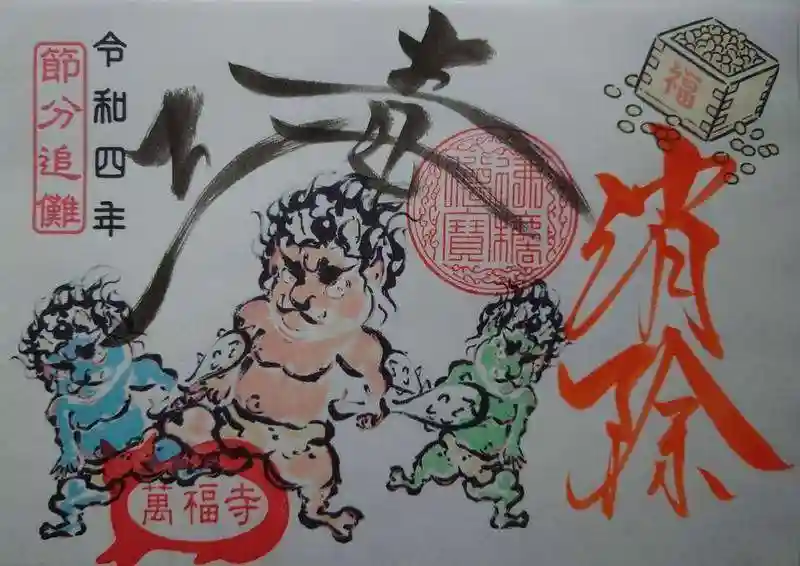 福
消除
令和四年
節分追儺
萬福寺